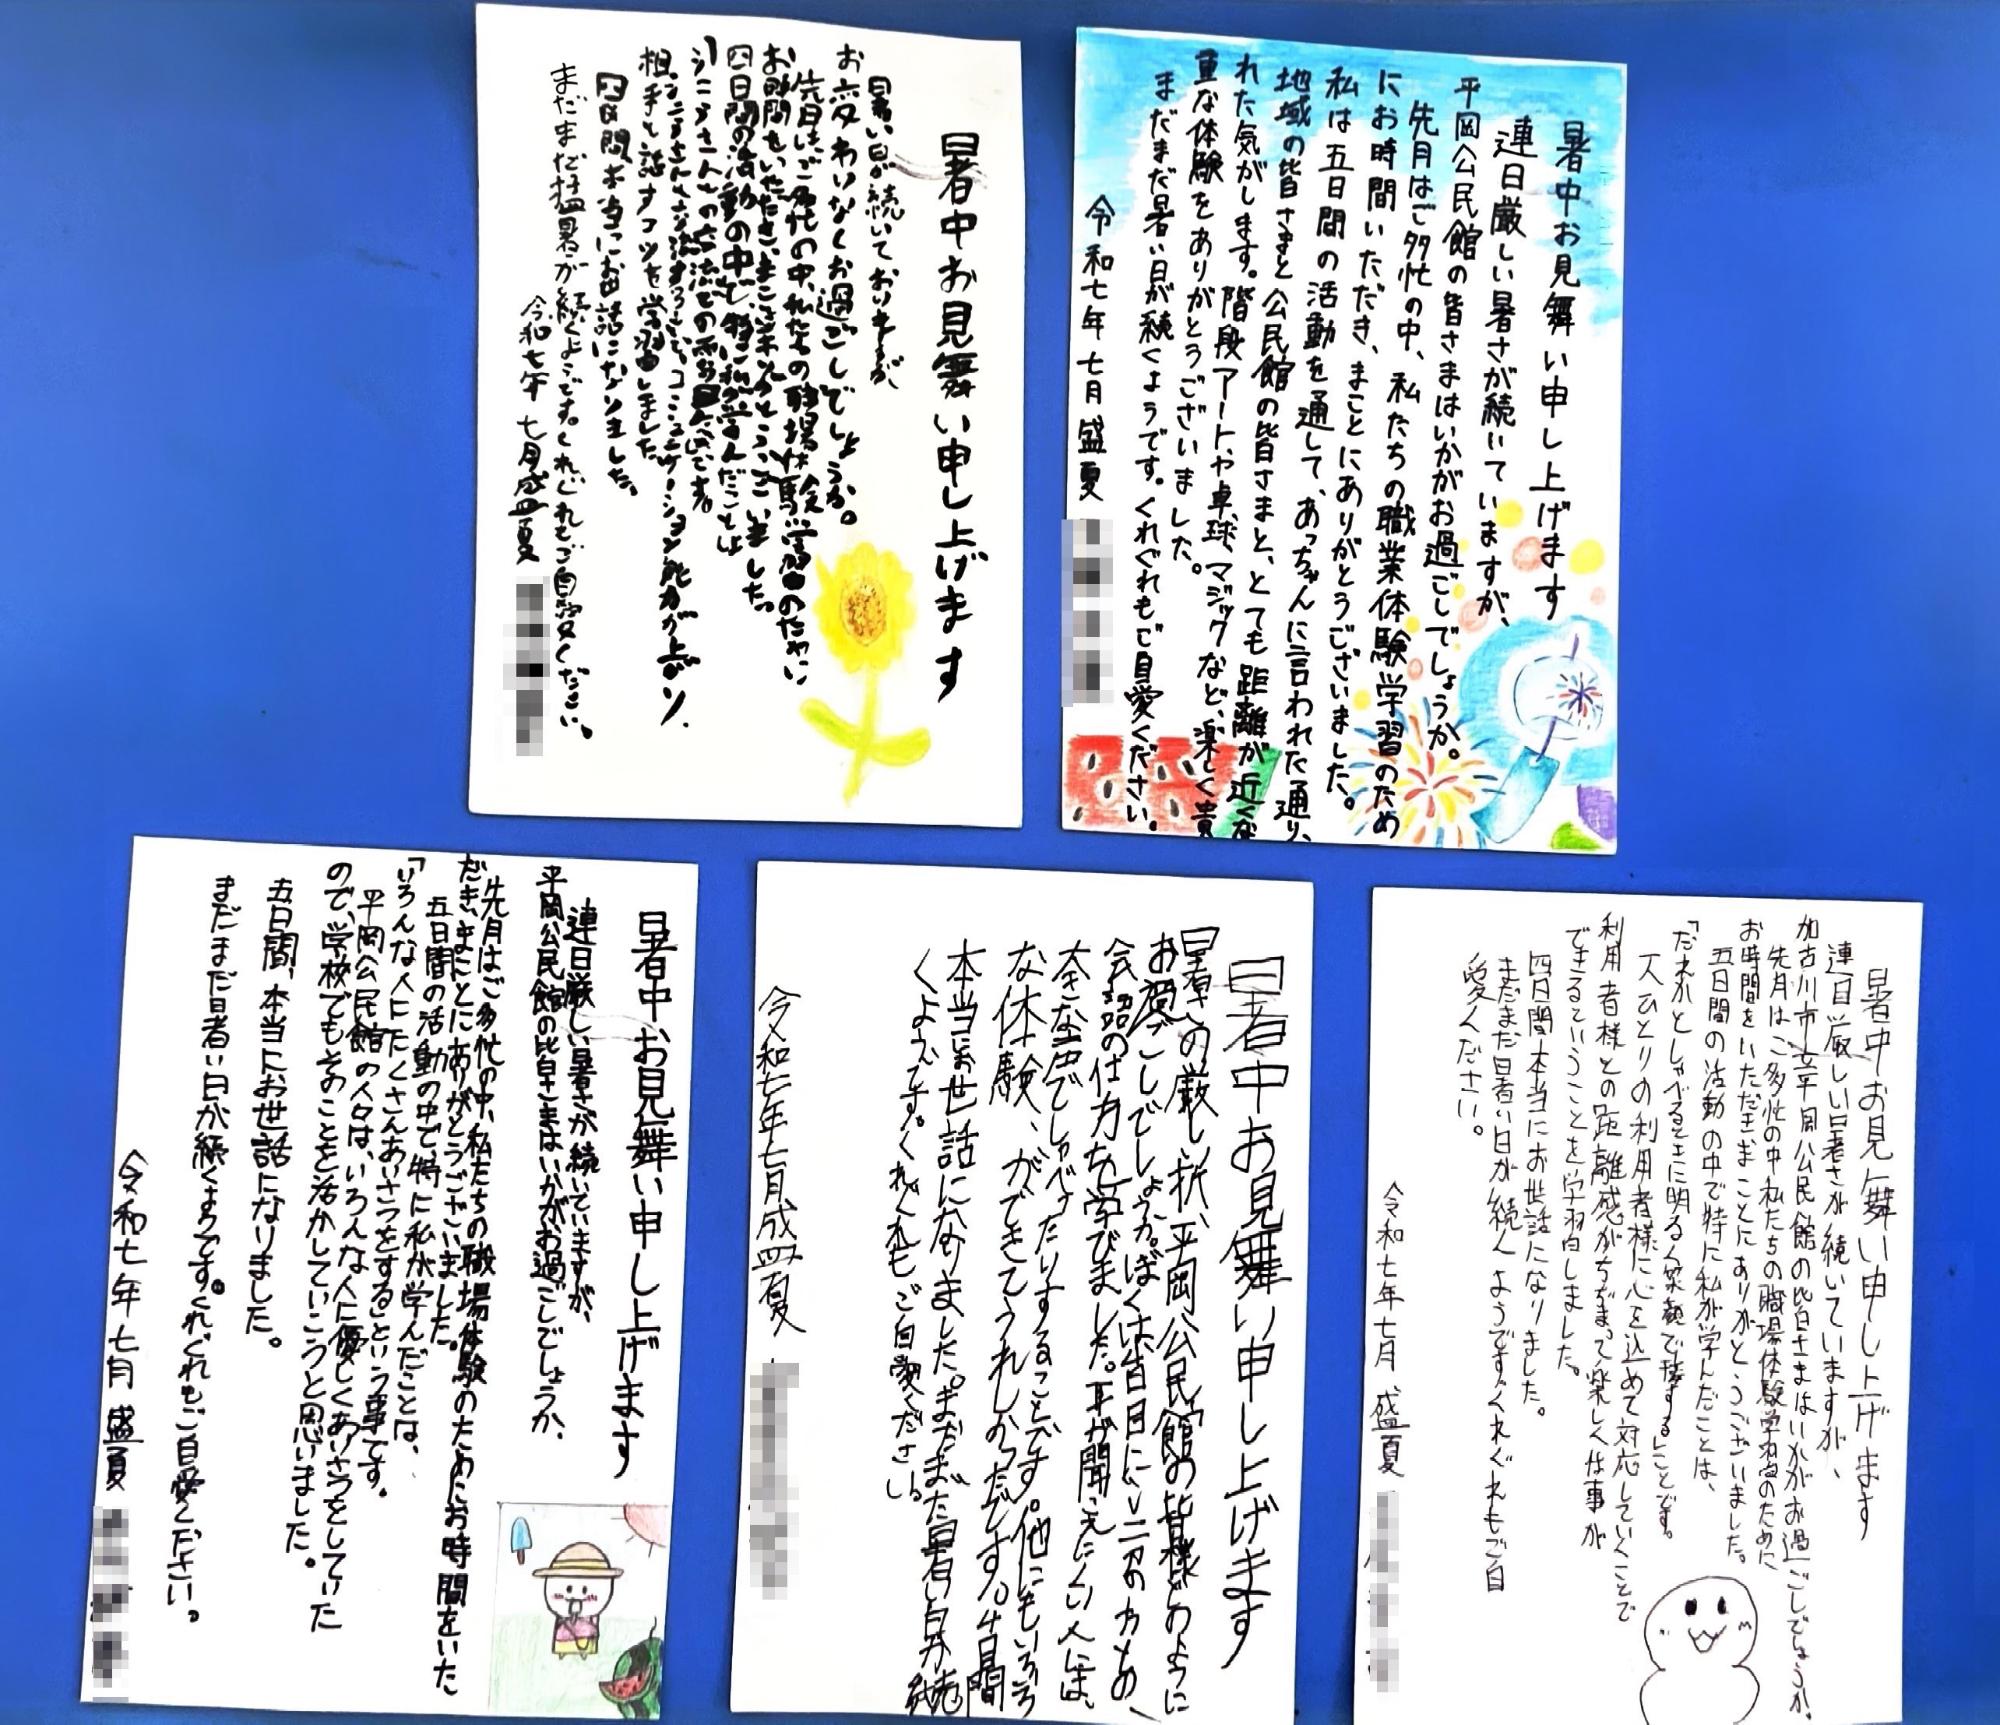 暑中お見舞い申し上げます
暑い日が続いておりますが
お変わりなくお過ごしでしょうか。
先日は、ご多忙の中、私たちの職場体験学習のために
お時間をいただき、まことにありがとうございました。
四日間の活動の中で、特に私が学んだことは
相手と話すコツを学習しました。
四日間、本当にお世話になりました。
まだまだ猛暑が続くようです。くれぐれもご自愛ください。
令和七年 七月盛夏
暑中お見舞い申し上げます
連日厳しい暑さが続いていますが、
平岡公民館の皆さまはいかがお過ごしでしょうか。
先月はご多忙の中、私たちの職業体験学習のため
にお時間いただき、まことにありがとうございました。
私は五日間の活動を通して、あっちゃんに言われた通り、
地域の皆さまと公民館の皆さまと、とても距離が近くな
れた気がします。階段アートや卓球、マジックなど、楽しく貴
重な体験をありがとうございました。
まだまだ暑い日が続くようです。くれぐれもご自愛ください。
令和七年七月盛夏
暑中お見舞い申し上げます
連日厳しい暑さが続いていますが、
平岡公民館の皆さまはいかがお過ごしでしょうか、
先月はご多忙の中、私たちの職場体験のためにお時間をいた
だき、まことにありがとうございました。
五日間の活動の中で、特に私が学んだことは、
「いろんな人にたくさんあいさつをする」という事です。
平岡公民館の人々は、いろんな人に優しくあいさつをしていた
ので、学校でもそのことを活かしていこうと思いました。
五日間、本当にお世話になりました。
まだまだ暑い日が続くようです。くれぐれもご自愛ください。
令和七年七月盛夏
暑中お見舞い申し上げます
暑さの厳しい折、平岡公民館の皆様どのように
お過ごしでしょうか。ぼくは
会話の仕方など学びました。耳が聞こえにくい人には、
大きな声でしゃべったりすることです。他にもいろいろ
な体験、ができてうれしかったです。4日間
本当にお世話になりました。まだまだ暑い日が続
くようです。くれぐれもご自愛ください
令和七年七月盛夏
暑中お見舞い申し上げます
連日厳しい暑さが続いていますが、
加古川市立平岡公民館の皆さまはいかがお過ごしでしょうか。
先月はご多忙の中私たちの職場体験学習のために
お時間をいただきまことにありがとうございました。
五日間の活動の中で特に私が学んだことは、
「だれかとしゃべるときに明るく笑顔で接する」ことです。
一人ひとりの利用者様に心を込めて対応していくことで
利用者様との距離感がちぢまって楽しく仕事が
できるということを学習しました。
四日間本当にお世話になりました。
まだまだ暑い日が続くようですくれぐれもご自
愛ください。
令和七年七月 盛夏